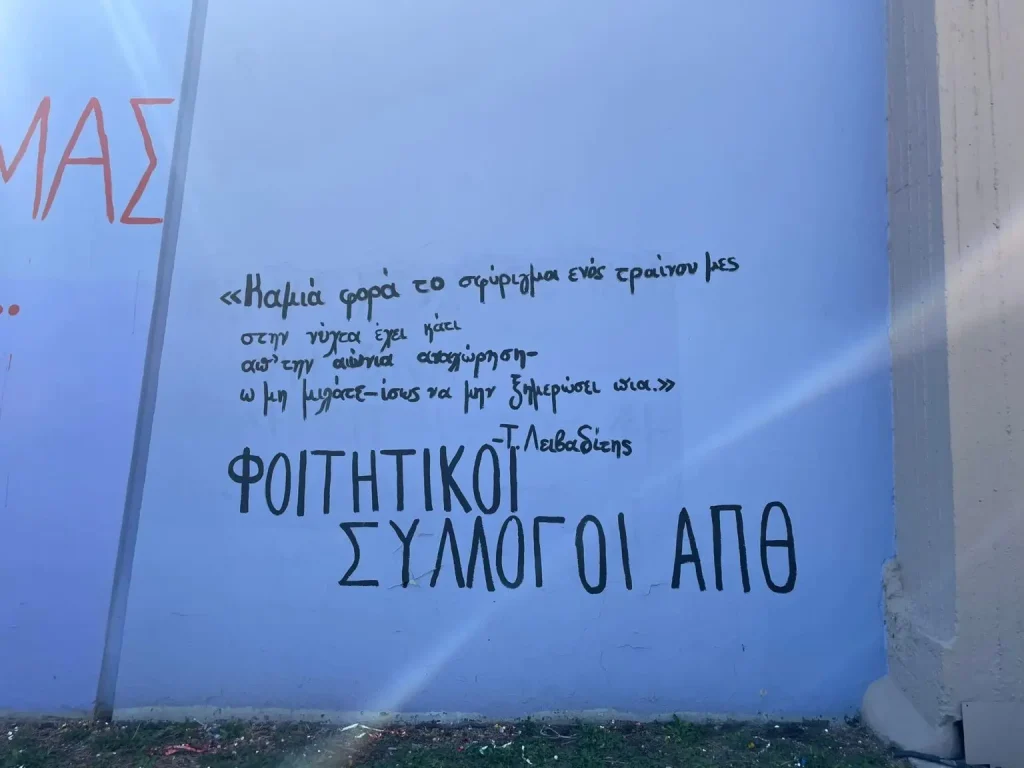 ΜΑΣ
..
«Καμιά φορά το σφύριγμα ενός τραίνου μες
στην νύχτα έχει κάτι
απ' την αιώνια αποχώρηση-
ω μη μιλάτε-ίσως να μην ξημερώσει πια.»
-Τ. Λειβαδίτης
ΦΟΙΤΗΤΙΚΟΙ
ΣΥΛΛΟΓΟΙ ΑΠΘ